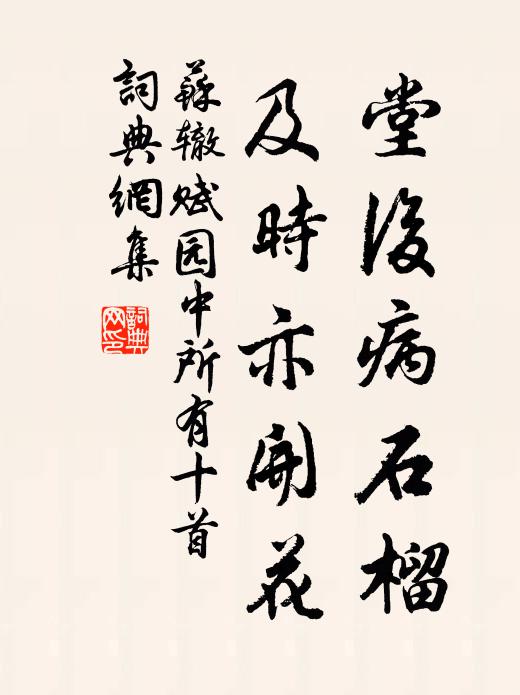 堂後病石榴
及時亦開花
蘇辙赋园中所有十首
詞典網集
詞典網印